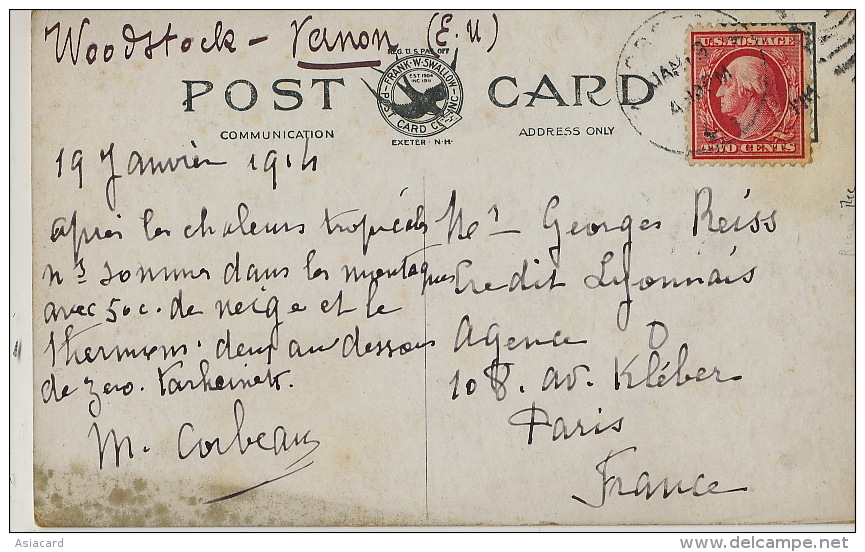 Woodstock - Vanon (E.U)
REG. U.S. PAT. OFF
POST CARD
FRANK·W·SWALLOW
EST 1904
INC 1911
POST CARD CO. INC.
EXETER · N·H·
COMMUNICATION
ADDRESS ONLY
U.S. POSTAGE
TWO CENTS
JAN
19 Janvier 1914
après les chaleurs tropicales
ns sommes dans les montagnes
avec 50c. de neige et le
thermom. deux au dessous
de zero.
M. Corbeau
Mr Georges Reiss
Credit Lyonnais
Agence O
108. av. Kléber
Paris
France
Asiacard
delcampe.net